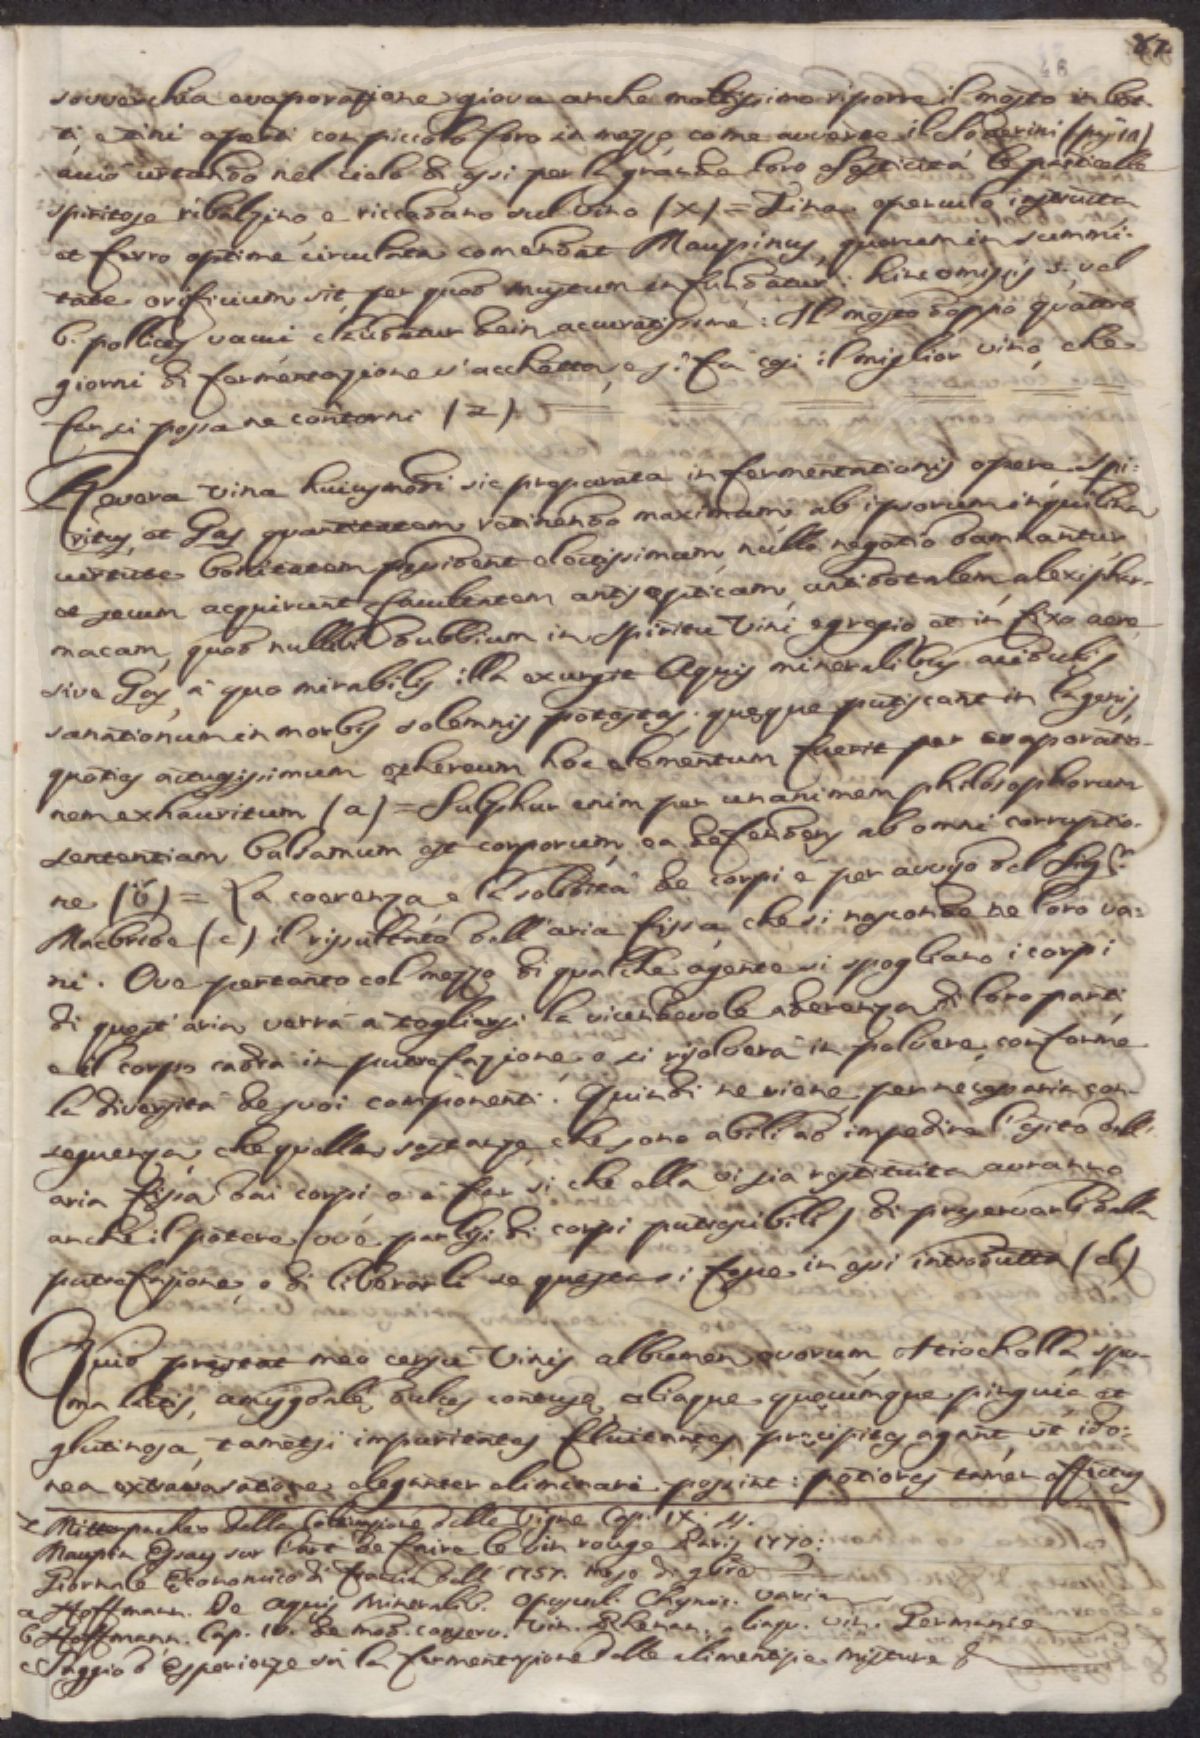 87
48
sovverchia evaporazione giova anche moltissimo riporre il mosto in bot-
ti, e tini aperti con piccolo foro in mezzo, come avverte il
acciò urtando nel cielo di essi per la grande loro elasticità le particelle
spiritose ribalzino, e riccadano sul vino (x) = Tina operculo instructa
et ferro optime circulata comendat Maupinus, quorum in summi-
tate orificium sit, per quod mustum infundatur: hinc omissis 5, vel
6. pollices vacui claudatur dein accuratissime: Il mosto doppo quattro
giorni di fermentazione s'acchetta, e si fa così il miglior vino, che
far si possa ne contorni (z).
Revera Vina huiusmodi sic preparata in fermentationis opere spi-
ritus, et Gas quantitatem retinendo maximam ab ipsorum inquilina
virtute bonitatem possident electissimam, nullo negotio damnantur
et secum acquirunt facultatem antisepticam, antidotalem, alexiphar-
macam, quod nullibi dubbium in Spiritu Vini egregio et in fixo aere
sive Gas, à quo mirabilis illa exurgit Aquis mineralibus acidulis
sanationum in morbis solemnis potestas: quęque putiscant in lagenis,
quoties actuosissimum ethereum hoc elementum fuerit per evaporatio-
nem exhauritum (a) = Sulphur enim per unanimem philosophorum
sententiam balsamum est corporum, ea defendens ab omni corruptio-
ne (b) = La coerenza, e la solidità de corpi è per avviso del Sigr.
Macbride (c) il risultato dell'aria fissa, che si nasconde ne loro va-
ni. Ove pertanto col mezzo di qualche agente si spogliano i corpi
di quest'aria verrà a togliersi la vicendevole aderenza di loro parti,
e il corpo cadrà in putrefazione, o si risolverà in polvere, conforme
la diversità de suoi componenti. Quindi ne viene per necessaria con-
seguenza, che quelle sostanze, che sono abili ad impedire l'esito dell'
aria fissa dai corpi, o à far si che ella vi sia restituita avranno
anche il potere (ove parlisi di corpi putrescibili) di preservarli dalla
putrefazione, o di liberarli se questa si fosse in essi introdutta (d)
Quid prestat meo censu Vinis albumen ovorum, Ictiocholla, spu-
ma lactis, amygdalę dulces contusę, aliaque quęcumque pinguia et
glutinosa, tametsi impurientes fluitantes precipites agant, ut ido-
nea extravasatione eleganter eliminari possint: potiores tamen effectus
z Mitterpacher della Coltivazione delle Vigne Cap. IX.
Maupin Essay sur l'art de faire le vin rouge Paris 1770:
Giornale Economico di Francia dell'1757. mese di
a Hoffmann. De aquis Mineralib. opuscul. Chymic. varia
b Hoffmann. Cap. IV. de mod. conserv. Vin. Rhenan. Germanie
c Saggio d'Esperienze su la fermentazione delle alimentizie misture